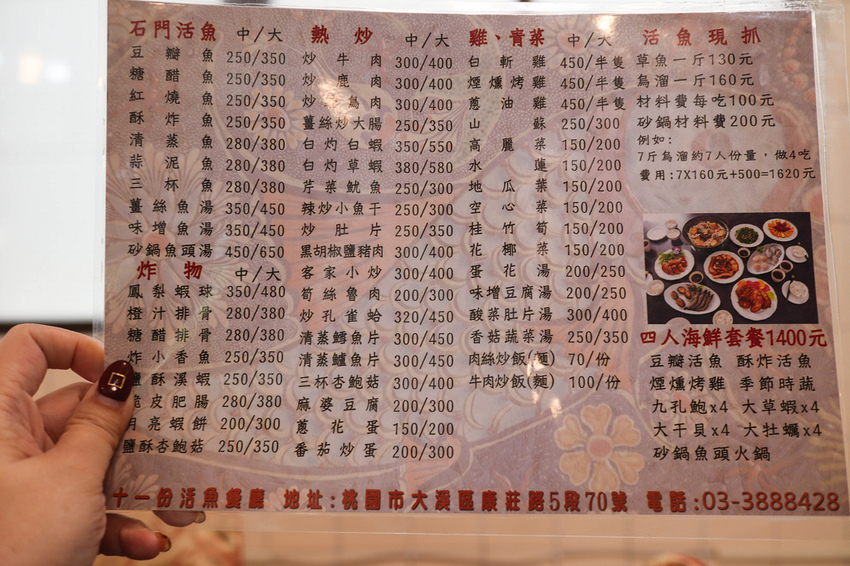 石門活魚 中/大
豆瓣魚 250/350
糖醋魚 250/350
紅燒魚 250/350
酥炸魚 250/350
清蒸魚 280/380
蒜泥魚 280/380
三杯魚 280/380
薑絲魚湯 350/450
味增魚湯 350/450
砂鍋魚頭湯 450/650
炸物 中/大
鳳梨蝦球 350/480
橙汁排骨 280/380
糖醋排骨 280/380
炸小香魚 250/350
鹽酥溪蝦 250/350
脆皮肥腸 280/380
月亮蝦餅 200/300
鹽酥杏鮑菇 250/350
熱炒 中/大
炒牛肉 300/400
炒鹿肉 300/400
炒鴕鳥肉 300/400
薑絲炒大腸 250/350
白灼白蝦 350/550
白灼草蝦 380/580
芹菜魷魚 250/300
辣炒小魚干 250/300
炒肚片 250/350
黑胡椒鹽豬肉 300/400
客家小炒 300/400
筍絲魯肉 200/300
炒孔雀蛤 320/450
清蒸鱈魚片 300/450
清蒸鱸魚片 300/450
三杯杏鮑菇 300/400
麻婆豆腐 200/300
蔥花蛋 150/200
番茄炒蛋 200/300
雞、青菜 中/大
白斬雞 450/半隻
煙燻烤雞 450/半隻
蔥油雞 450/半隻
山蘇 250/300
高麗菜 150/200
水蓮 150/200
地瓜葉 150/200
空心菜 150/200
桂竹筍 150/200
花椰菜 150/200
蛋花湯 200/250
味增豆腐湯 200/250
酸菜肚片湯 300/400
香菇蔬菜湯 250/350
肉絲炒飯(麵) 70/份
牛肉炒飯(麵) 100/份
活魚現抓
草魚一斤130元
烏溜一斤160元
材料費每吃100元
砂鍋材料費200元
例如:
7斤烏溜約7人份量，做4吃
費用:7X160元+500=1620元
四人海鮮套餐1400元
豆瓣活魚 酥炸活魚
煙燻烤雞 季節時蔬
九孔鮑x4 大草蝦x4
大干貝x4 大牡蠣x4
砂鍋魚頭火鍋
十一份活魚餐廳 地址:桃園市大溪區康莊路5段70號 電話:03-3888428